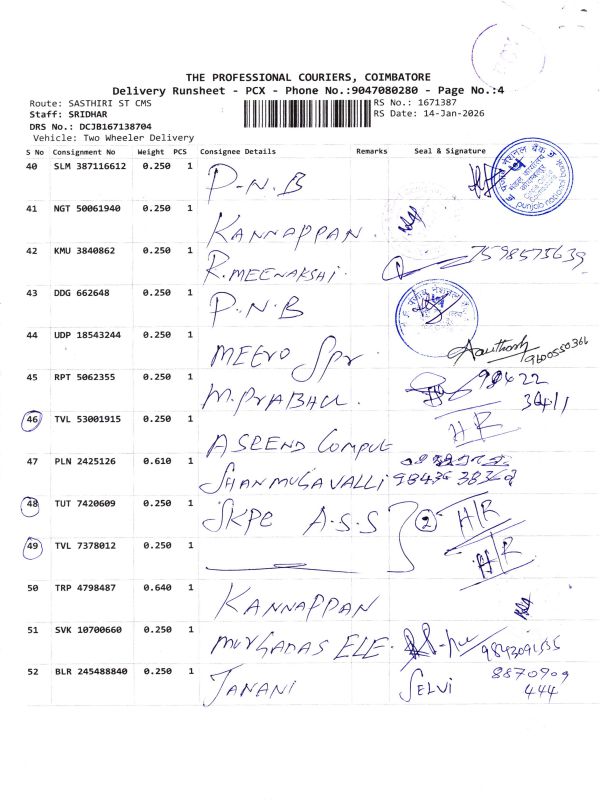 THE PROFESSIONAL COURIERS, COIMBATORE
Delivery Runsheet - PCX - Phone No.:9047080280 - Page No.:4
Route: SASTHIRI ST CMS
RS No.: 1671387
Staff: SRIDHAR
RS Date: 14-Jan-2026
DRS No.: DCJB167138704
Vehicle: Two Wheeler Delivery
S No Consignment No Weight PCS Consignee Details Remarks Seal & Signature
40 SLM 387116612 0.250 1 P.N.B
41 NGT 50061940 0.250 1 KANNAPPAN.
42 KMU 3840862 0.250 1 R.MEENAKSHI. 7598575639
43 DDG 662648 0.250 1 P.N.B
44 UDP 18543244 0.250 1 9600550366
45 RPT 5062355 0.250 1 M.PRABHU. 98422
46 TVL 53001915 0.250 1 ASCEND H/R
47 PLN 2425126 0.610 1 SHANMUGAVALLI
48 TUT 7420609 0.250 1 SKPC A.S.S 2 H/R
49 TVL 7378012 0.250 1 H/R
50 TRP 4798487 0.640 1 KANNAPPAN
51 SVK 10700660 0.250 1 MURUGADAS ELE.
52 BLR 245488840 0.250 1 JANANI SELVI 8870909
444